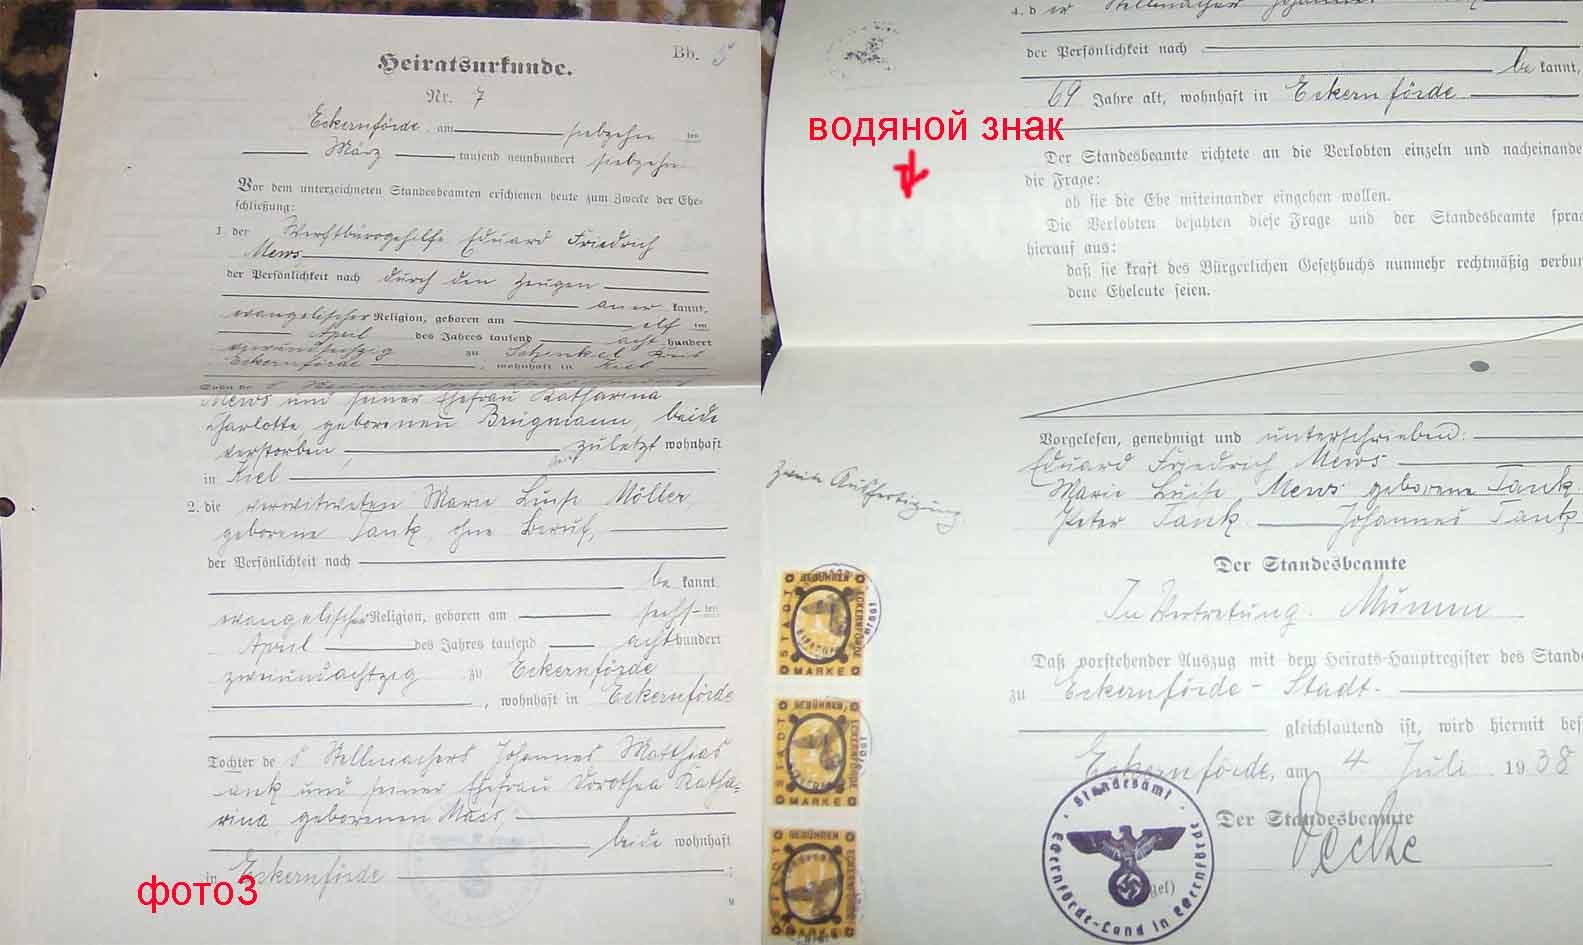 Bb. 5
Heiratsurkunde.
Nr. 7
Eckernförde am siebzehn ten
März tausend neunhundert siebzehn
Vor dem unterzeichneten Standesbeamten erschienen heute zum Zwecke der Ehe-
schließung:
1. der Werftbürogehilfe Eduard Friedrich
Mews
der Persönlichkeit nach durch den Zeugen
aner kannt,
evangelischer Religion, geboren am elf ten
April des Jahres tausend acht hundert
zu Schinkel Kreis
Eckernförde, wohnhaft in Kiel
Mews und seiner Ehefrau Katharina
Charlotte geborenen Brügmann, beide
verstorben, zuletzt wohnhaft
in Kiel
2. die verwitweten Marie Luise Möller,
geborene Tank, ohne Beruf,
der Persönlichkeit nach
be kannt
evangelischer Religion, geboren am sechs- ten
April des Jahres tausend acht hundert
zweiundachtzig zu Eckernförde
, wohnhaft in Eckernförde
Tochter des Stellmachers Johannes Matthias
Tank und seiner Ehefrau Dorothea Katha-
rina geborenen Maas,
beide wohnhaft
in Eckernförde ;
фото3
4. der Stellmacher
der Persönlichkeit nach
be kannt,
69 Jahre alt, wohnhaft in Eckernförde
водяной знак
Der Standesbeamte richtete an die Verlobten einzeln und nacheinande
die Frage:
ob sie die Ehe miteinander eingehen wollen.
Die Verlobten bejahten diese Frage und der Standesbeamte sprac
hierauf aus:
daß sie kraft des Bürgerlichen Gesetzbuchs nunmehr rechtmäßig verbun
dene Eheleute seien.
Vorgelesen, genehmigt und unterschrieben:
Eduard Friedrich Mews
Marie Luise Mews geborene Tank
Peter Tank Johannes Tank
Zweite Ausfertigung
Der Standesbeamte
In Vertretung. Mumm
Daß vorstehender Auszug mit dem Heirats-Hauptregister des Stande
zu Eckernförde-Stadt-
gleichlautend ist, wird hiermit bes
Eckernförde, am 4 Juli 1938
Der Standesbeamte
GEBÜHREN
STADT ECKERNFÖRDE
MARKE
GEBÜHREN
STADT ECKERNFÖRDE
MARKE
GEBÜHREN
STADT ECKERNFÖRDE
MARKE
Standesamt
Eckernförde-Land in Eckernförde